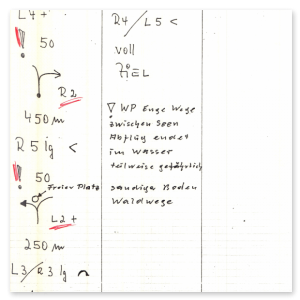 L4+
! 50
R2
450 m
R5 lg <
! 50
Freier Platz
L2+
250 m
L3/R3 lg
R4/L5 <
voll
ZIEL
∇ WP Enge Wege
zwischen Seen
Abflug endet
im Wasser
teilweise gefährlich
sandige Boden
Waldwege